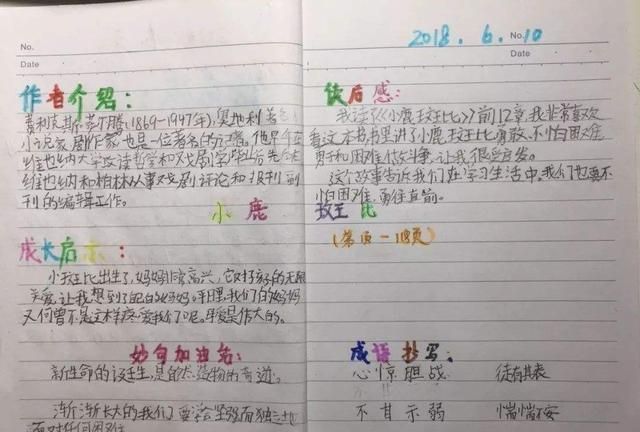 No.
Date
2018.6.10
No.
Date
作者介绍:
费利克斯·萨尔腾(1869-1947年),奥地利著名
小说家,剧作家也是一位著名的记者。他早年在
维也纳大学攻读哲学和戏剧学,毕业后先后在
维也纳和柏林从事戏剧评论和报刊副
刊的编辑工作。
读后感:
我读了《小鹿班比》前12章,我非常喜欢
看这本书,书里讲了小鹿班比勇敢、不怕困难
勇于和困难做斗争,让我很受启发。
这个故事告诉我们在学习生活中,我们也要不
怕困难,勇往直前。
小 鹿 班 比
(第1页-118页)
成长启示:
小班比出生了,妈妈非常高兴,它对孩子的无限
关爱,让我想到了自己的妈妈。平日里,我们的妈妈
又何尝不是这样疼爱我们呢。母爱是伟大的。
妙句加油站:
新生命的诞生,是自然造物的奇迹。
渐渐长大的我们要学会坚强而独立地
面对任何困难
成语抄写:
心惊胆战 徒有其表
不甘示弱 惴惴不安